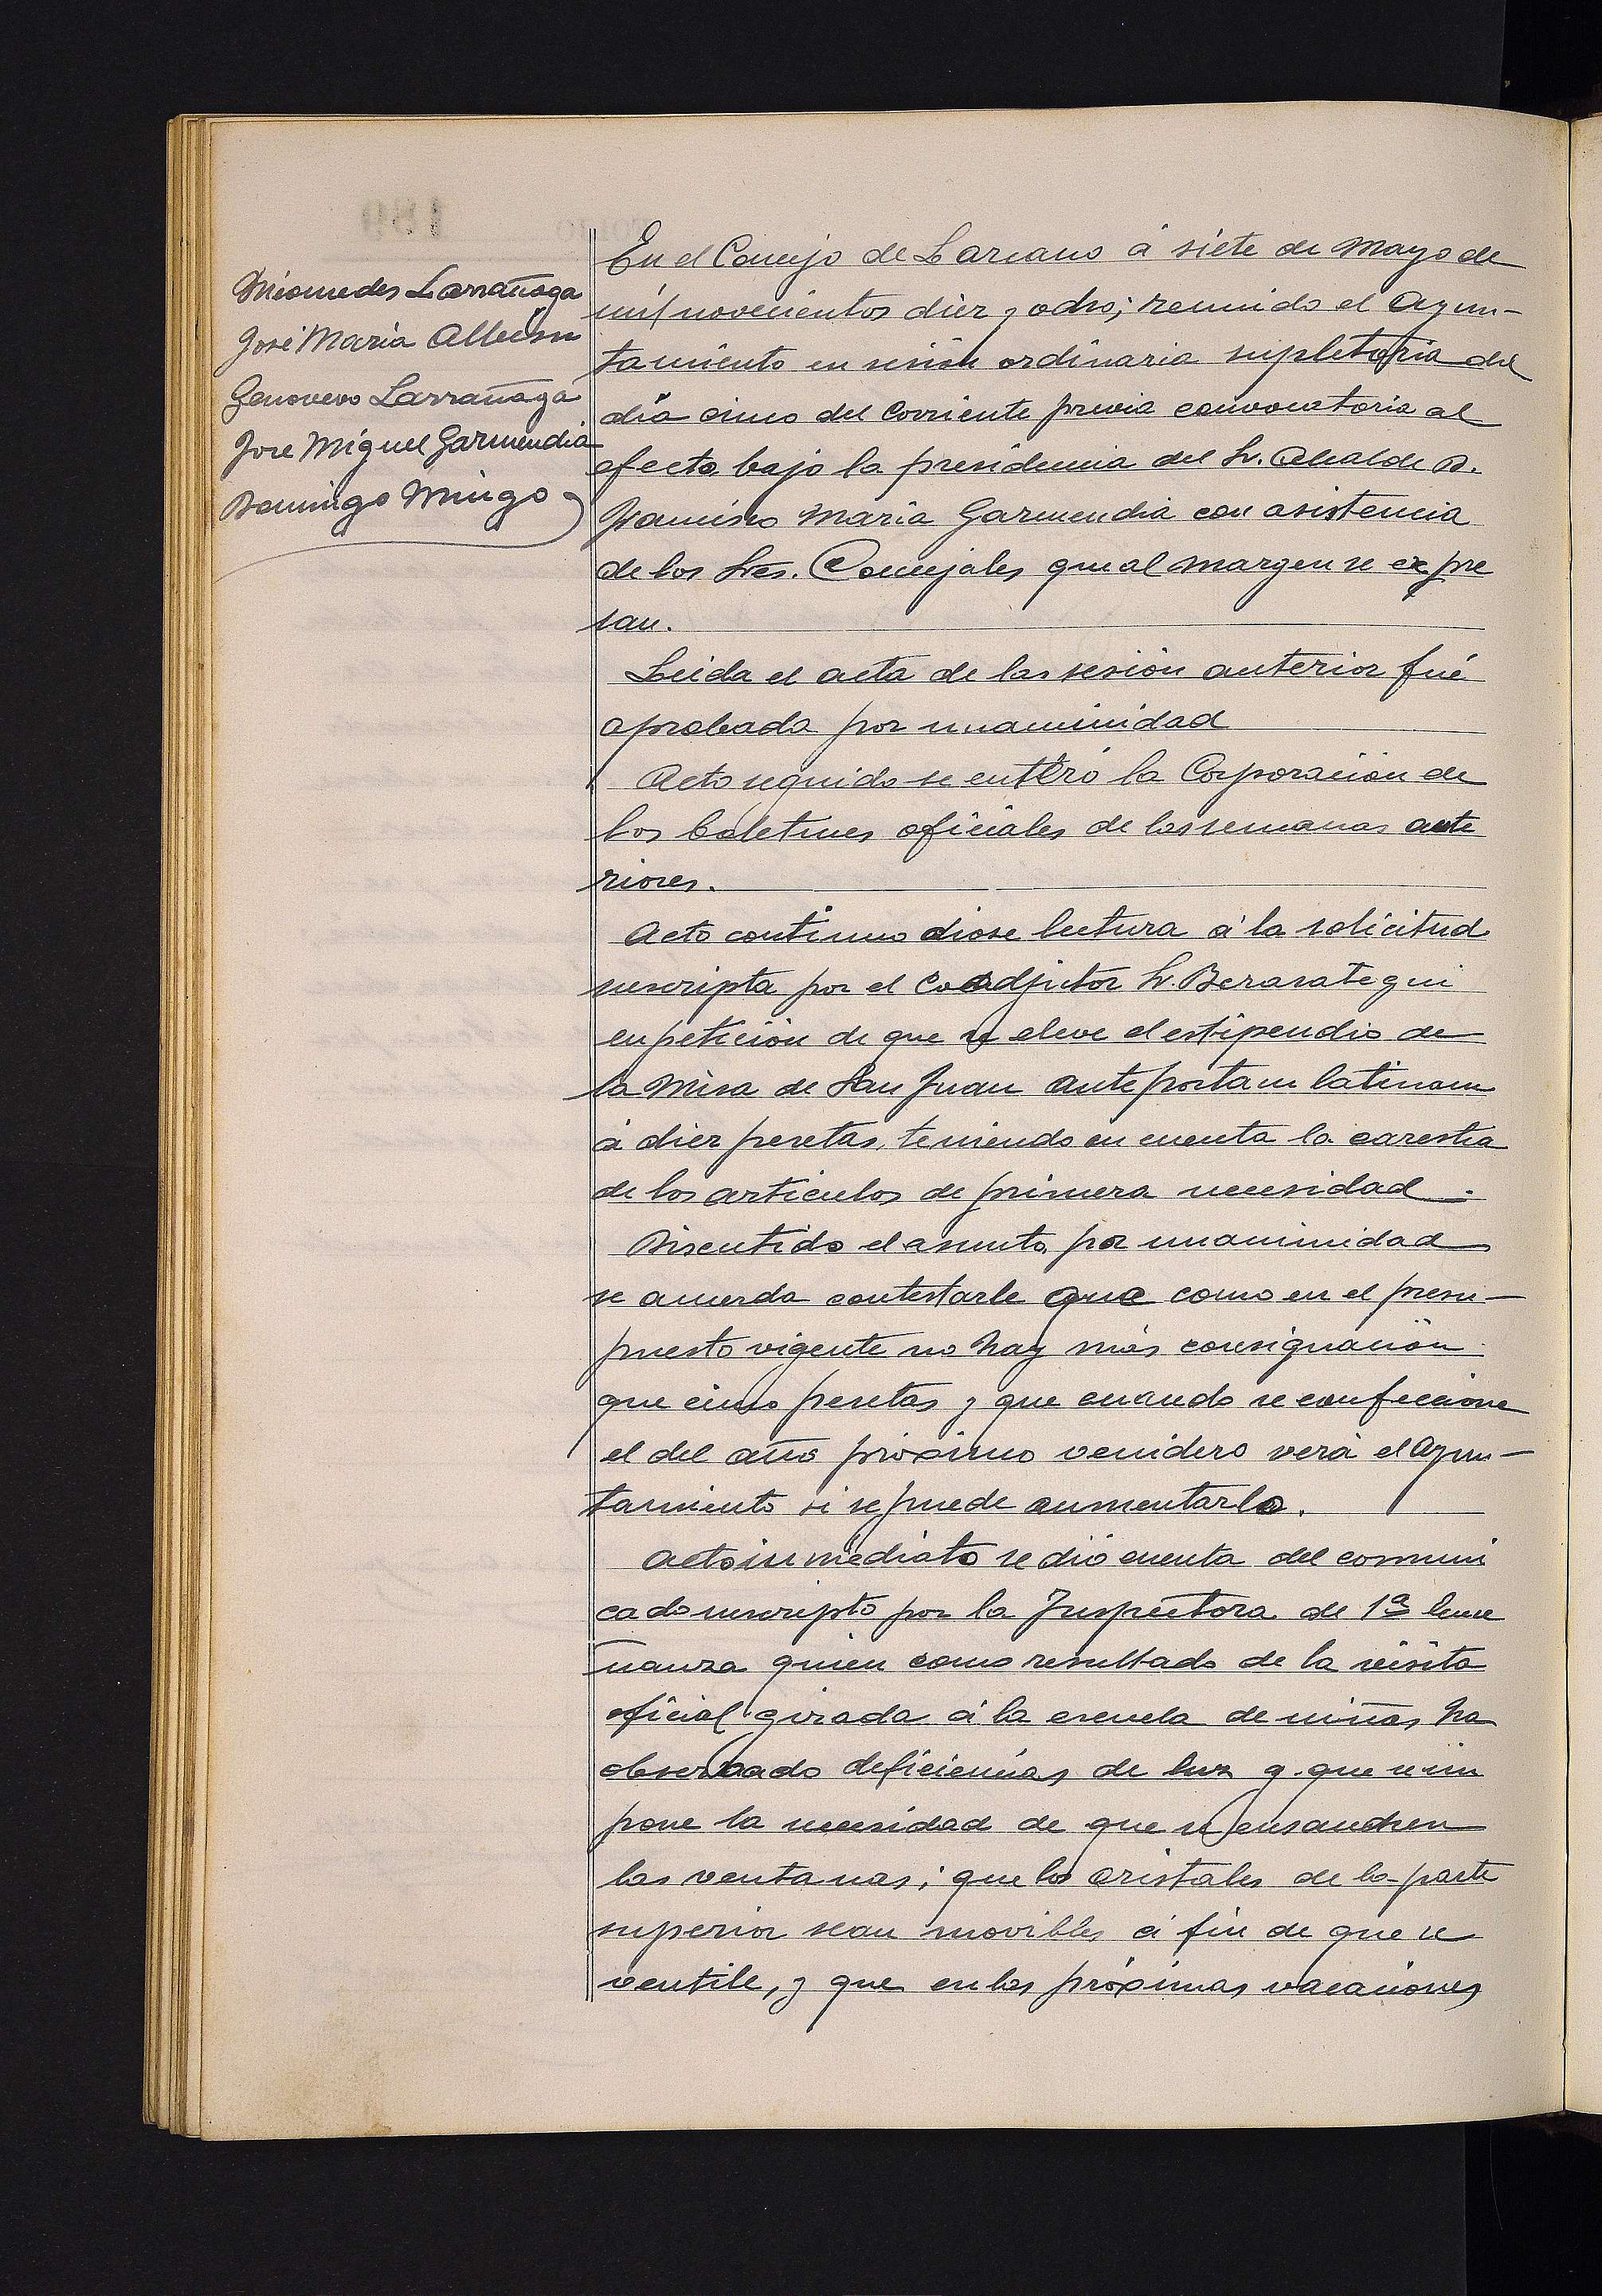 Diomedes Larrañaga
José María Alberdi
Genovevo Larrañaga
José Miguel Garmendia
Domingo Mingo
En el Concejo de Lazcano á siete de Mayo de
mil novecientos diez y ocho; reunido el Ayun-
tamiento en sesión ordinaria supletoria del
día cinco del corriente previa convocatoria al
efecto bajo la presidencia del Sr. Alcalde D.
Francisco María Garmendia con asistencia
de los Sres. Concejales que al margen se expre
san.
Leida el acta de las sesión anterior fué
aprobada por unanimidad
Acto seguido se enteró la Corporación de
los boletines oficiales de las semanas ante
riores.
Acto continuo diose lectura á la solicitud
suscripta por el Coadjutor Sr. Berasategui
en petición de que se eleve el estipendio de
la Misa de San Juan ante portam latinam
á diez pesetas, teniendo en cuenta la carestia
de los artículos de primera necesidad.
Discutido el asunto por unanimidad
se acuerda contestarle que como en el presu-
puesto vigente no hay más consignación
que cinco pesetas y que cuando se confeccione
el del año próximo venidero verá el Ayun-
tamiento si se puede aumentarlo.
Acto inmediato se dió cuenta del comuni
cado suscripto por la Inspectora de 1ª
nanza quien como resultado de la visita
oficial girada á la escuela de niñas ha
observado deficiencias de luz y que se im
pone la necesidad de que se ensanchen
las ventanas; que los cristales de la parte
superior sean movibles á fin de que se
ventile, y que en las próximas vacaciones